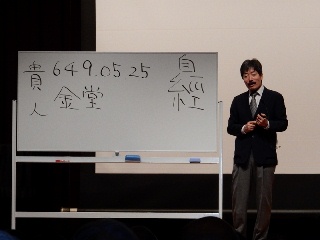 貴人
649.0525
金堂